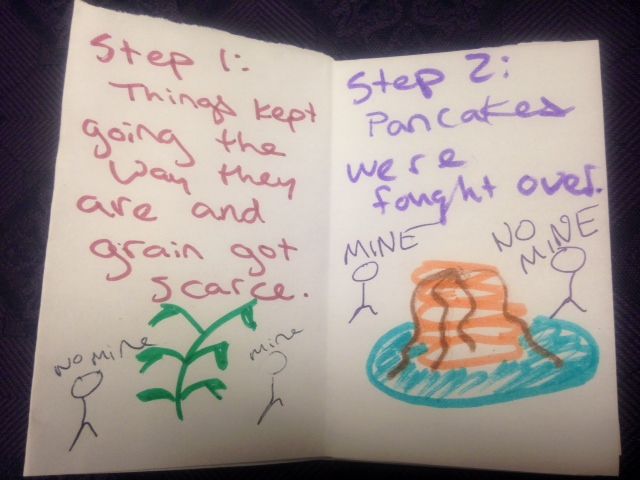 Step 1:
Things kept
going the
way they
are and
grain got
scarce.
NO MINE
mine
Step 2:
Pancakes
were
fought over.
MINE
NO
MINE